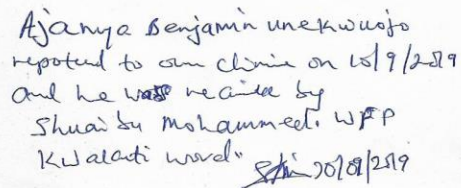 Ajanya Benjamin unekwuojo
repoted to our clinic on 10/9/2019
and he was recived by
Shuaibu Mohammed. WFP
Kwalati word.
20/09/2019